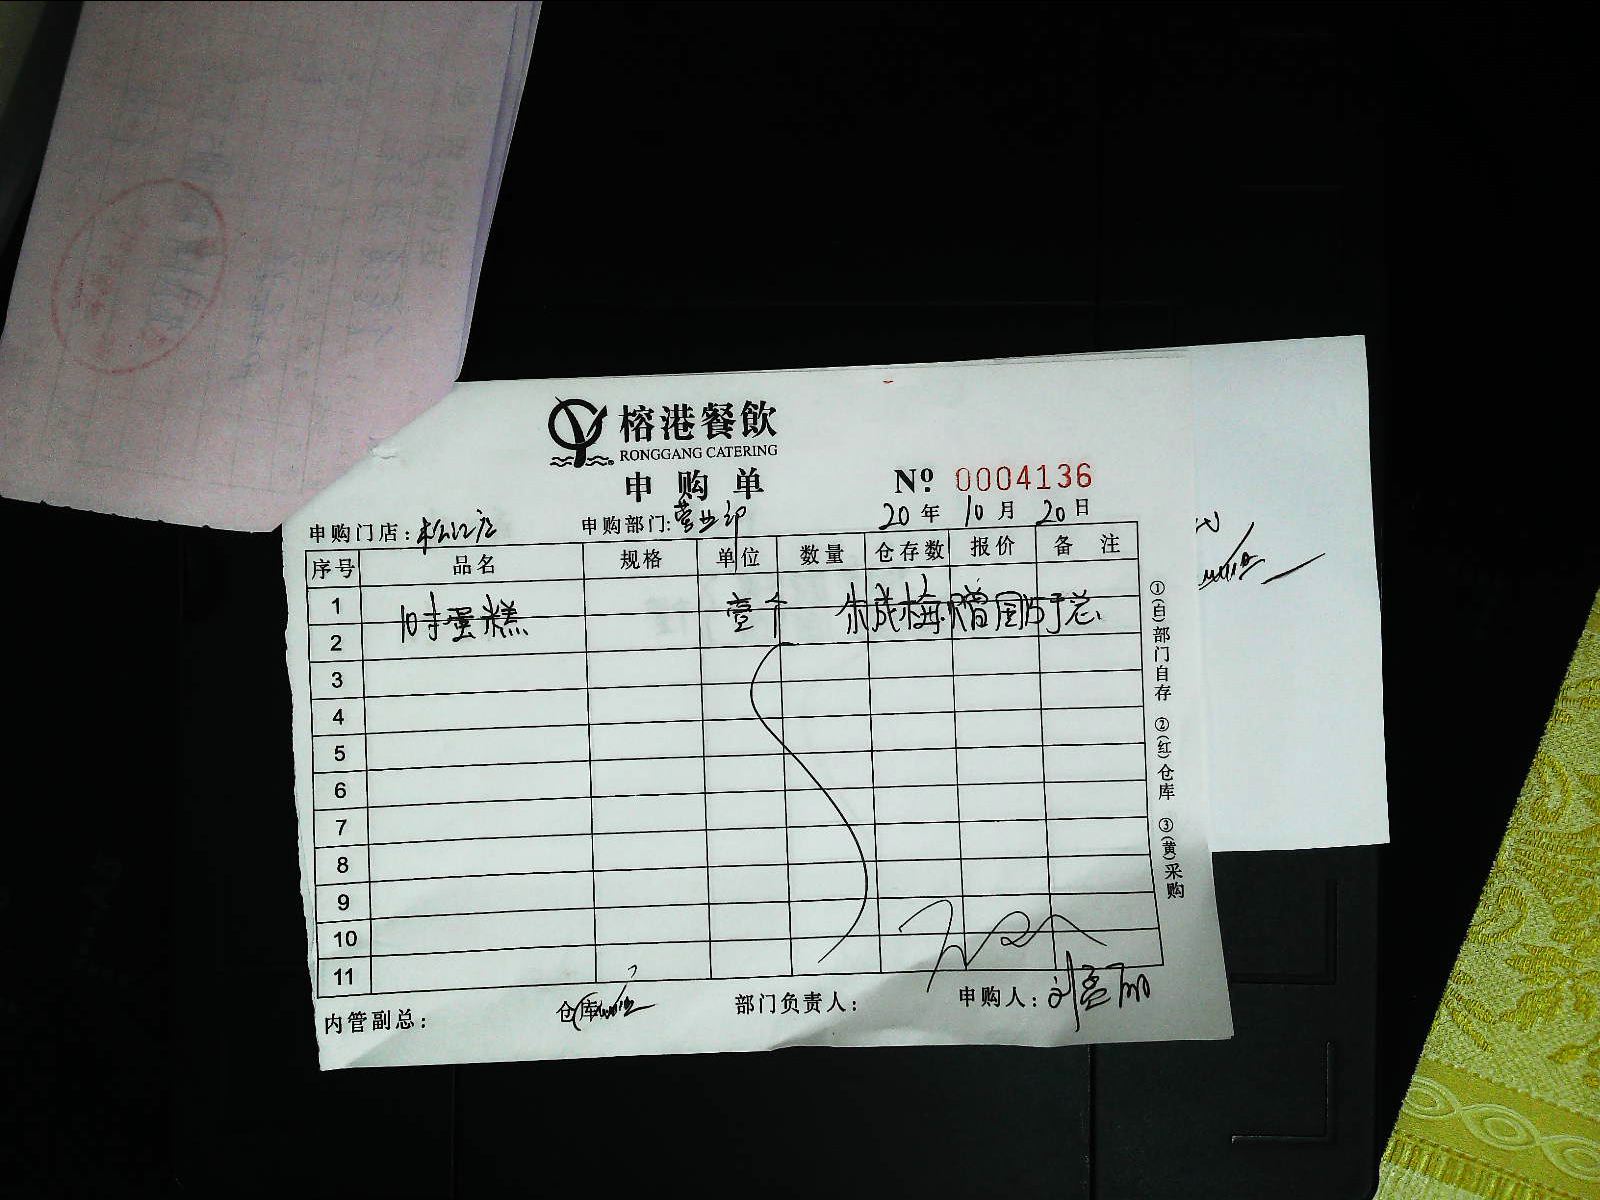 榕港餐飲
RONGGANG CATERING
申购单 Nº 0004136
申购门店：松江店 申购部门：营业部 20年10月20日
序号 品名 规格 单位 数量 仓存数 报价 备注
1
10寸蛋糕 壹个 朱成梅 赠
2
3
4
5
6
7
8
9
10
11
内管副总： 仓库 部门负责人： 申购人：刘孟丽
①(白)部门自存 ②(红)仓库 ③(黄)采购